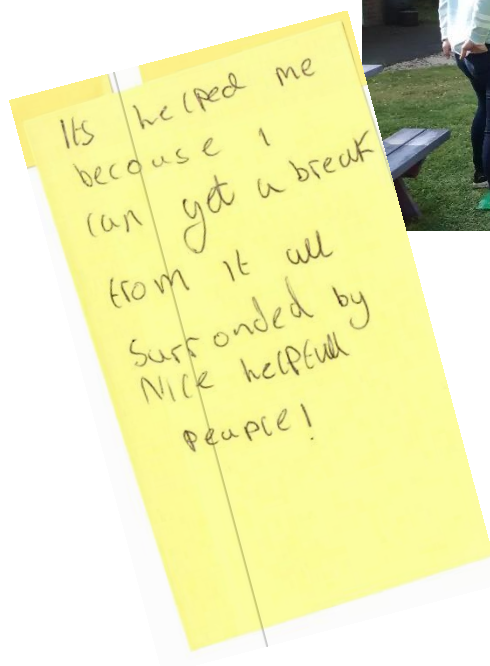 Its helped me
because I
can get a break
from it all
Surronded by
Nice helpfull
people!